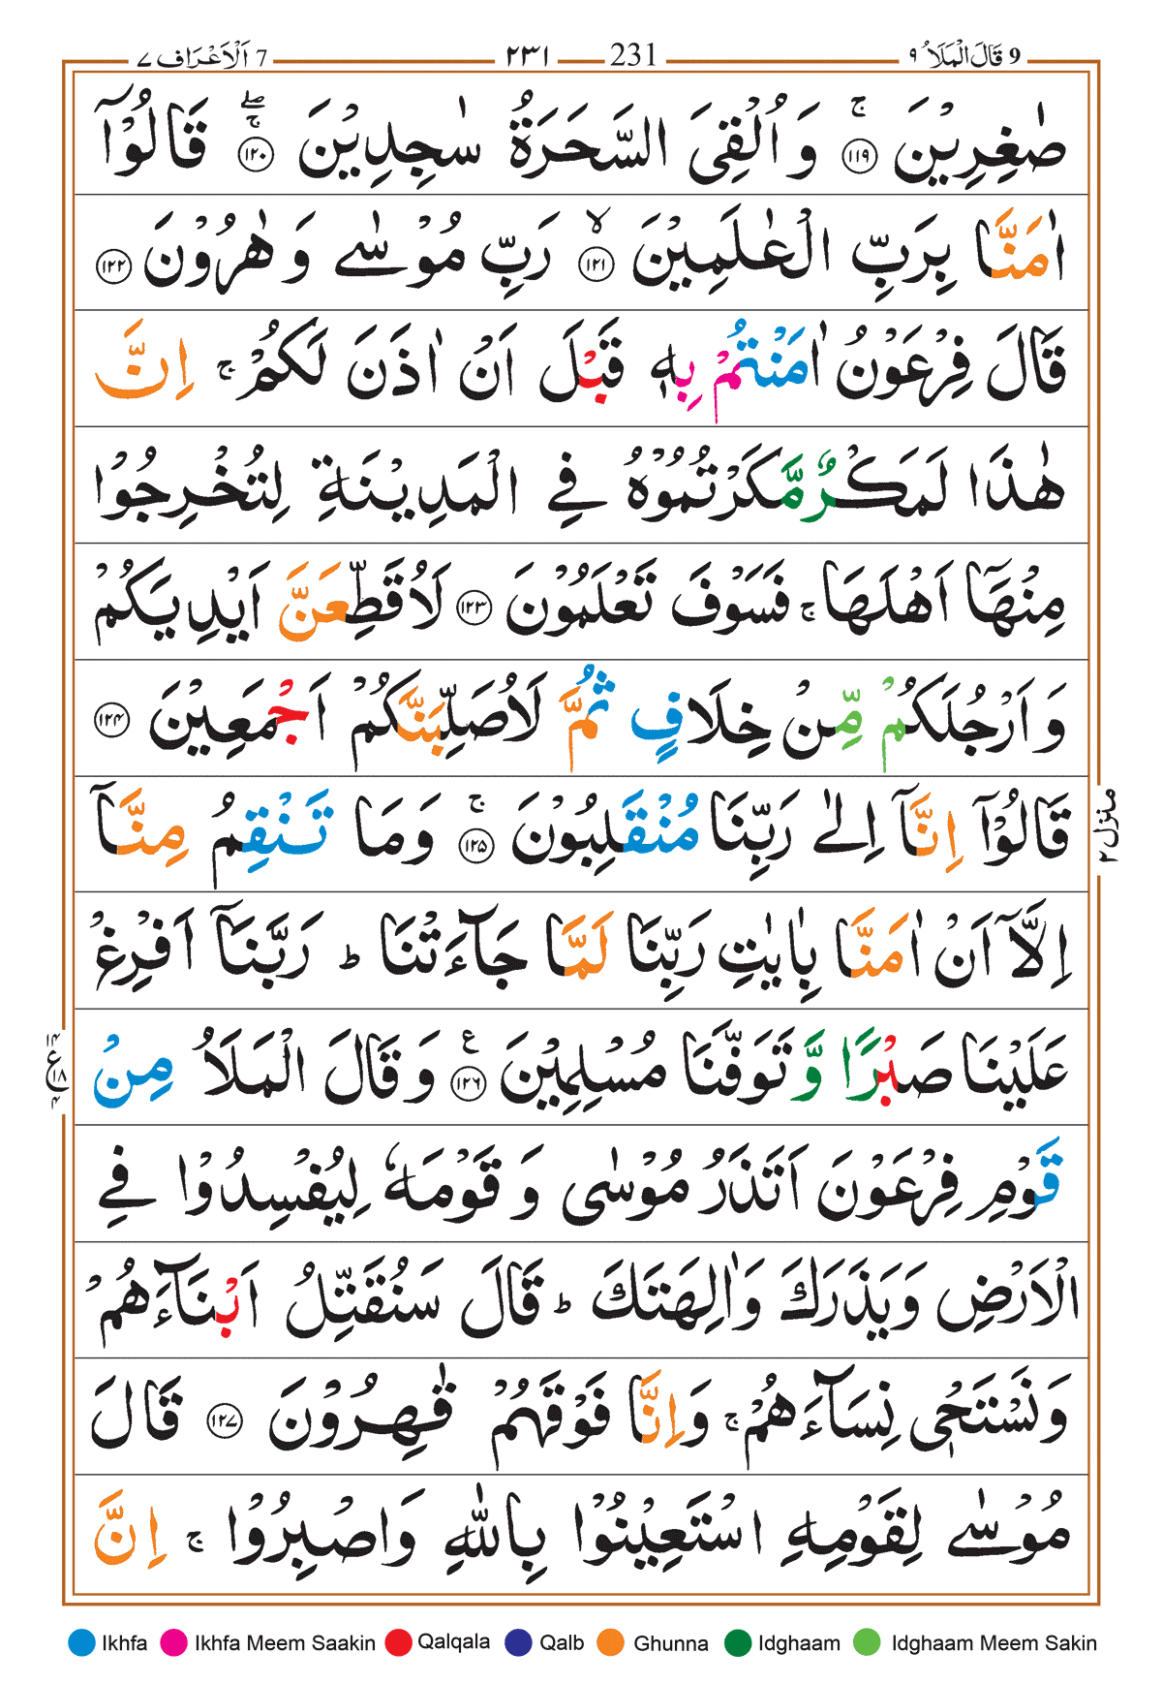 9 قَالَ الْمَلَاُ ۹ 231 ۲۳۱ 7 اَلْاَعْرَاف ۷
صٰغِرِيْنَ ۚ ﴿۱۱۹﴾ وَ اُلْقِىَ السَّحَرَةُ سٰجِدِيْنَ ۚۖ ﴿۱۲۰﴾ قَالُوْۤا
اٰمَنَّا بِرَبِّ الْعٰلَمِيْنَ ۙ ﴿۱۲۱﴾ رَبِّ مُوْسٰى وَ هٰرُوْنَ ﴿۱۲۲﴾
قَالَ فِرْعَوْنُ اٰمَنْتُمْ بِهٖ قَبْلَ اَنْ اٰذَنَ لَكُمْ ۚ اِنَّ
هٰذَا لَمَكْرٌ مَّكَرْتُمُوْهُ فِى الْمَدِيْنَةِ لِتُخْرِجُوْا
مِنْهَاۤ اَهْلَهَا ۚ فَسَوْفَ تَعْلَمُوْنَ ﴿۱۲۳﴾ لَاُقَطِّعَنَّ اَيْدِيَكُمْ
وَ اَرْجُلَكُمْ مِّنْ خِلَافٍ ثُمَّ لَاُصَلِّبَنَّكُمْ اَجْمَعِيْنَ ﴿۱۲۴﴾
قَالُوْۤا اِنَّاۤ اِلٰى رَبِّنَا مُنْقَلِبُوْنَ ۚ ﴿۱۲۵﴾ وَمَا تَنْقِمُ مِنَّاۤ
اِلَّاۤ اَنْ اٰمَنَّا بِاٰيٰتِ رَبِّنَا لَمَّا جَآءَتْنَا ؕ رَبَّنَاۤ اَفْرِغْ
عَلَيْنَا صَبْرًا وَّ تَوَفَّنَا مُسْلِمِيْنَ ۧ ﴿۱۲۶﴾ وَ قَالَ الْمَلَاُ مِنْ
قَوْمِ فِرْعَوْنَ اَتَذَرُ مُوْسٰى وَ قَوْمَهٗ لِيُفْسِدُوْا فِى
الْاَرْضِ وَيَذَرَكَ وَاٰلِهَتَكَ ؕ قَالَ سَنُقَتِّلُ اَبْنَآءَهُمْ
وَنَسْتَحْىٖ نِسَآءَهُمْ ۚ وَاِنَّا فَوْقَهُمْ قٰهِرُوْنَ ﴿۱۲۷﴾ قَالَ
مُوْسٰى لِقَوْمِهِ اسْتَعِيْنُوْا بِاللّٰهِ وَاصْبِرُوْا ۚ اِنَّ
منزل ۲
۱۴ ع ۱۸ ۴
Ikhfa Ikhfa Meem Saakin Qalqala Qalb Ghunna Idghaam Idghaam Meem Sakin